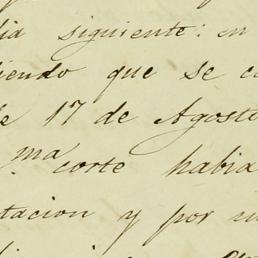 dia siguiente: en
iendo que se c
e 17 de Agosto
ma corte habia
tacion y por